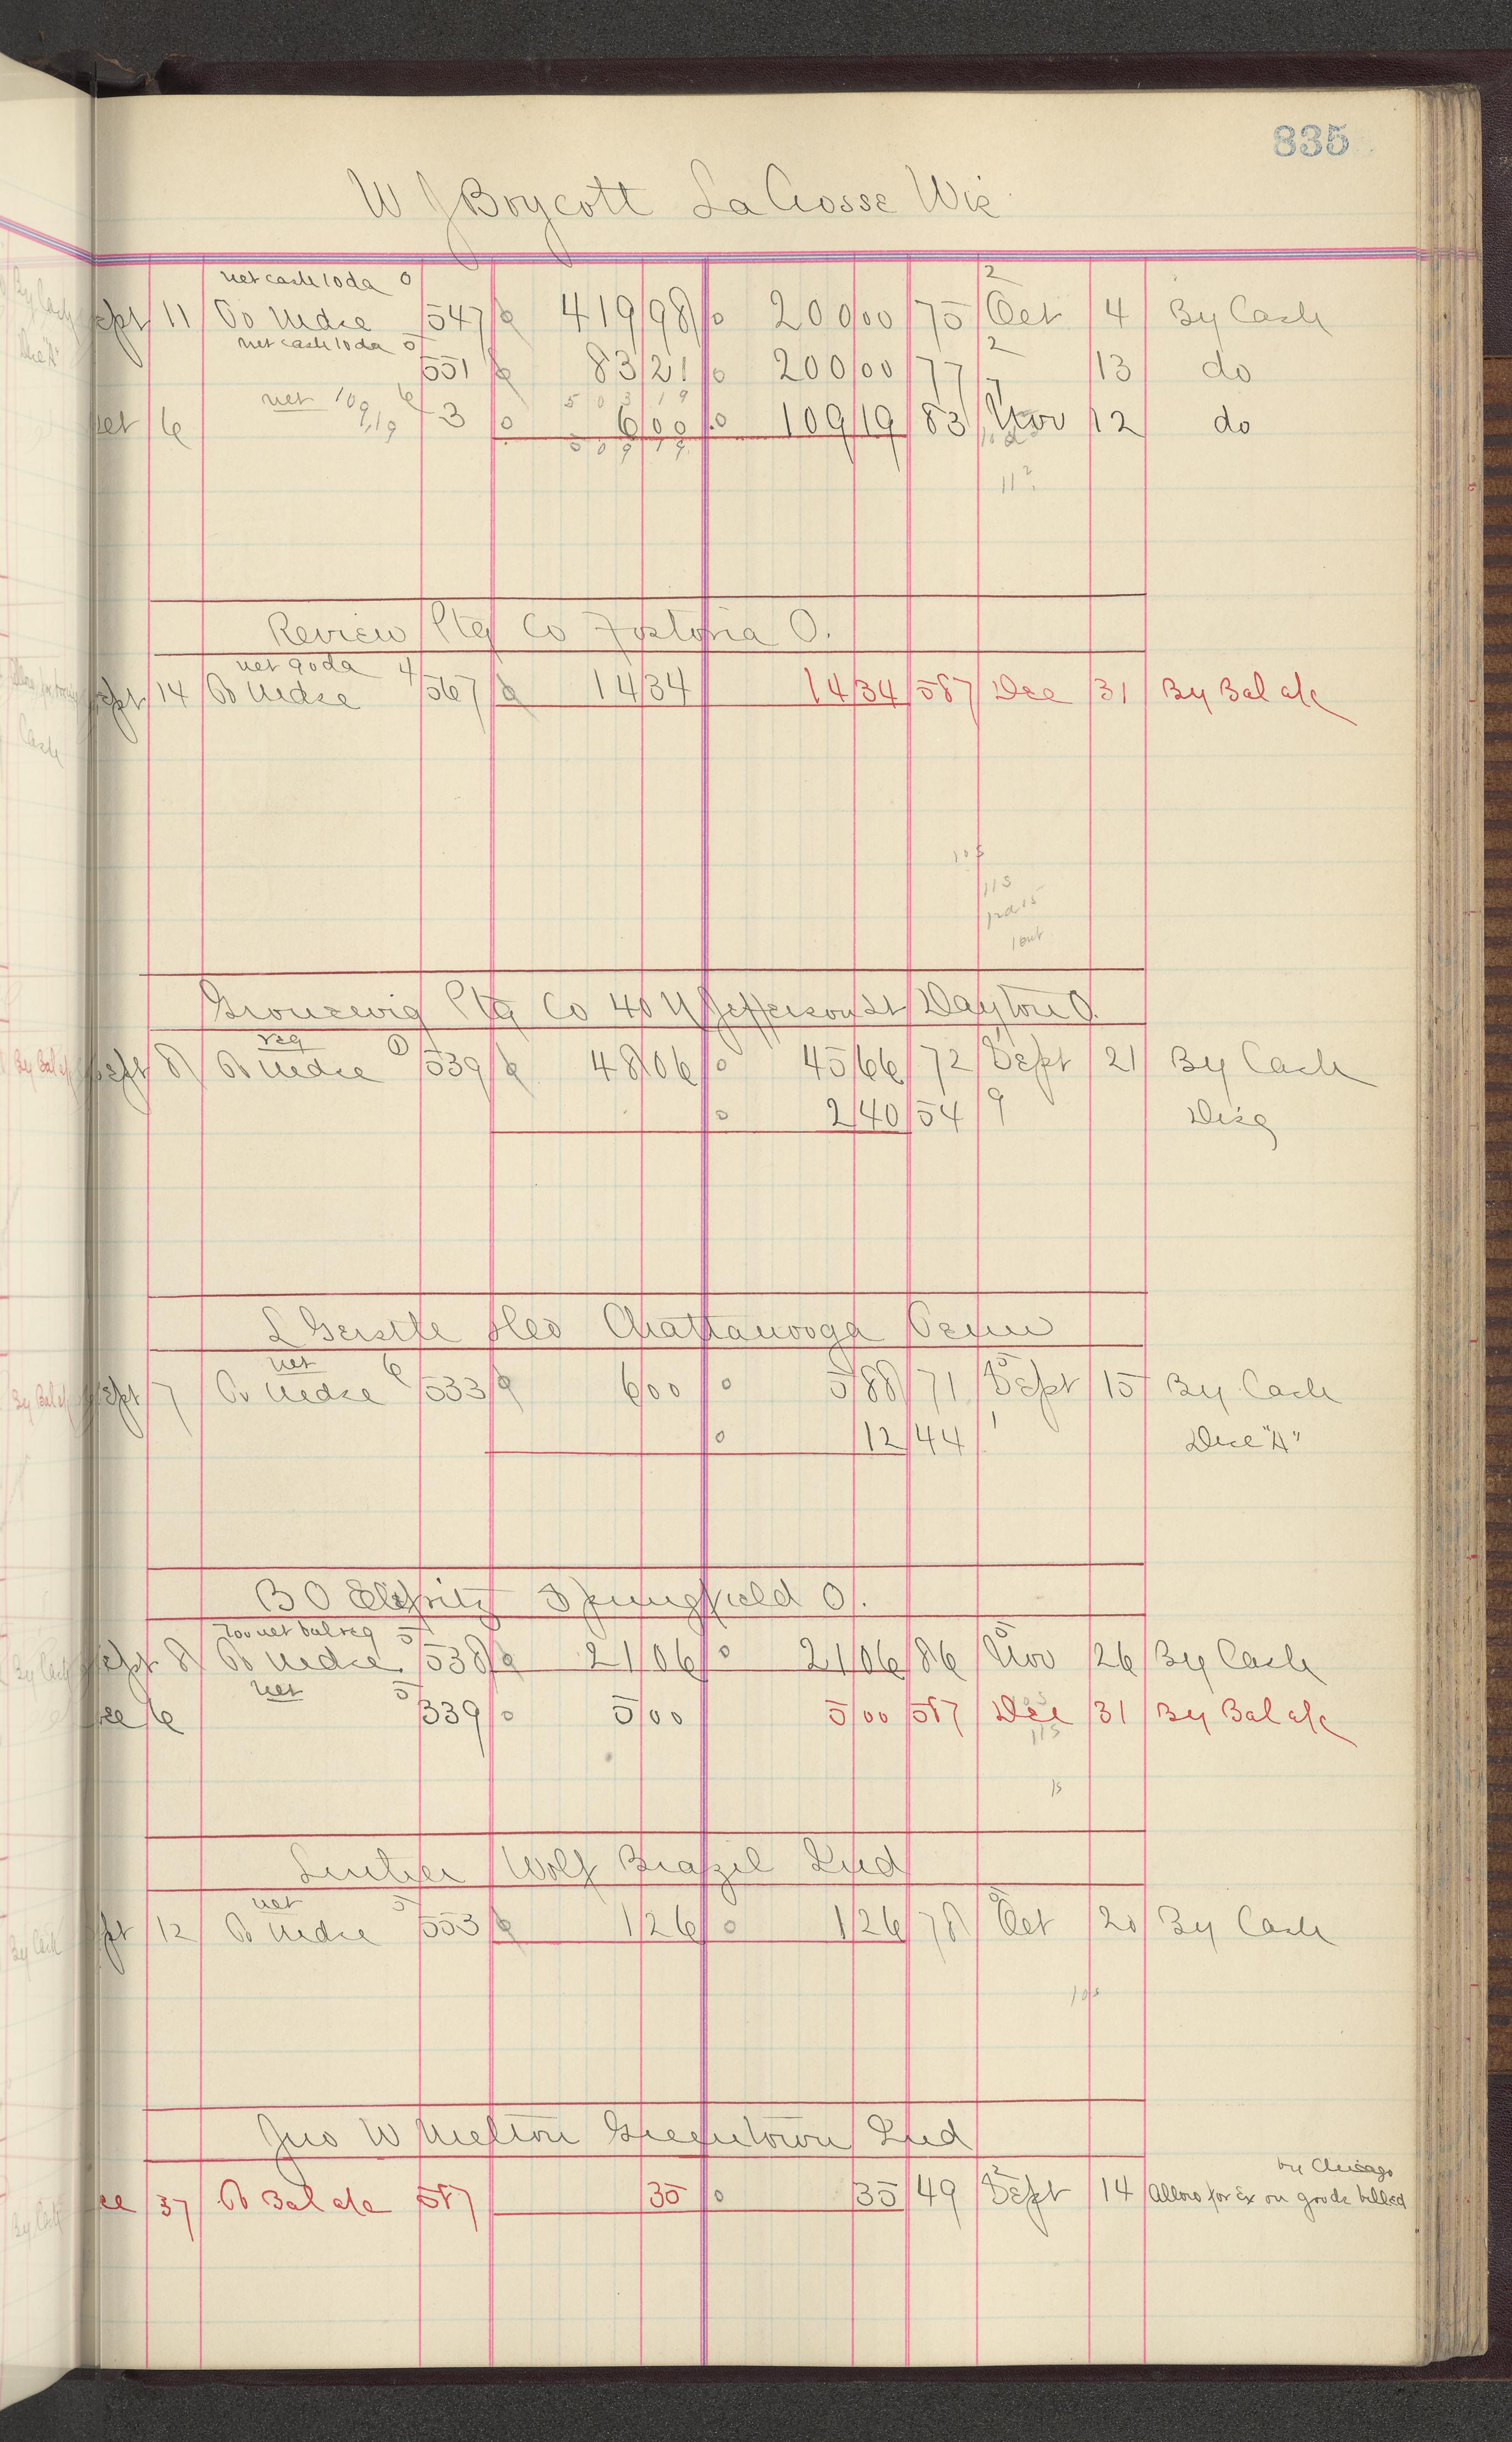 835
W J Boycott LaCrosse Wis
net cash 10 da 0 2
Sept 11 To Mdse 547 419 98 200 00 75 Oct 4 By Cash
net cash 10 da 0 2
551 83 21 200 00 77 13 do
5 0 3 1 9
net 109,19 6 7
Oct 6 3 6 00 109 19 83 Nov 12 do
5 0 9 1 9
11 2
Review Ptg Co Fostoria O.
net 90 da 4
Sept 14 To Mdse 567 14 34 14 34 587 Dec 31 By Bal a/c
10 5
11 5
Gronewig Ptg Co 40 N Jefferson St Dayton O.
reg 1
Sept 8 To Mdse 539 48 06 45 66 72 Sept 21 By Cash
2 40 54 9 Disc
L Gerstle & Co Chattanooga Tenn
net 6 5
Sept 7 To Mdse 533 6 00 5 88 71 Sept 15 By Cash
12 44 1 Disc "A"
B O Springfield O.
700 net bal reg 5 5
Sept 8 To Mdse 538 21 06 21 06 86 Nov 26 By Cash
net 5
Dec 6 339 5 00 5 00 587 Dec 31 By Bal a/c
11 5
Luther Wolf Brazil Ind
net 5
Sept 12 To Mdse 553 1 26 1 26 78 Oct 20 By Cash
10 5
Jno W Melton Greentown Ind
by Chicago
Dec 31 To Bal a/c 587 35 35 49 Sept 14 Allow for Ex on goods billed